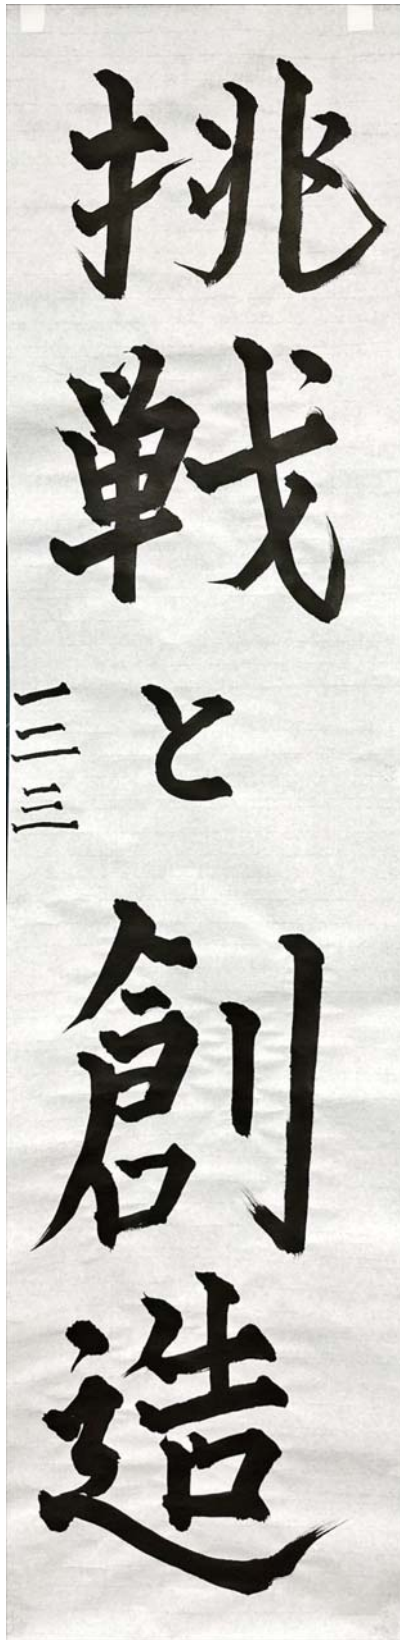 挑戦と創造
一二三